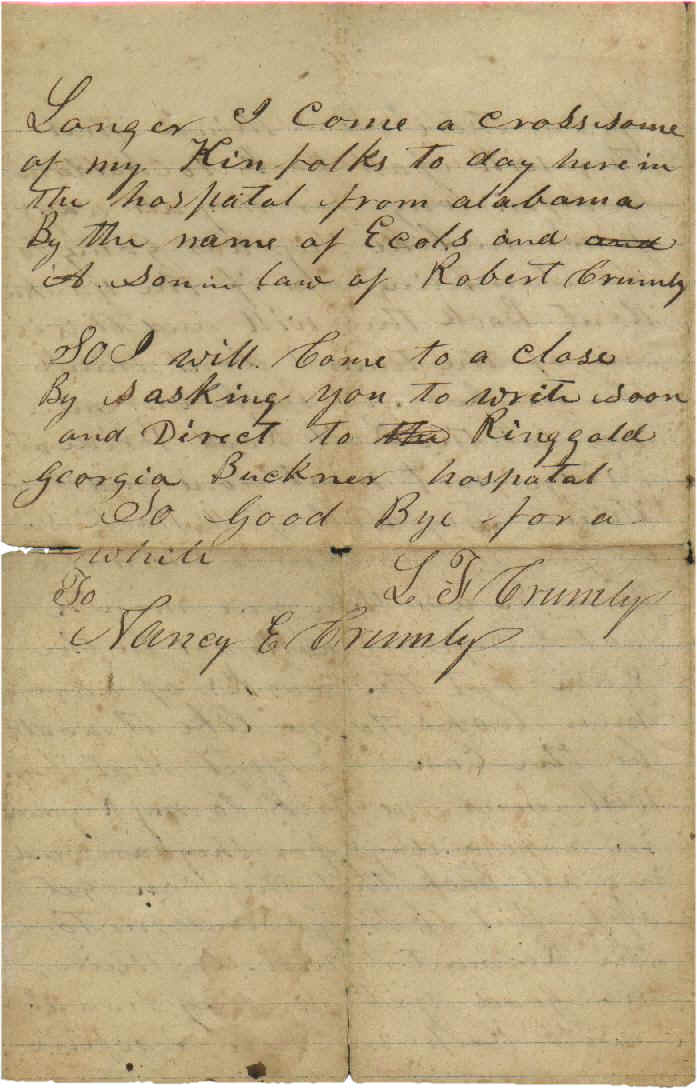 Longer I Come a cross some
of my Kin folks to day here in
the hospatal from alabama
By the name of Ecols and and
A. son in law of Robert Crumly
SO I will Come to a close
By s asking you to write soon
and Direct to the Ringgold
Georgia Buckner hospatal
So Good Bye for a
while
L F Crumly
To
Nancy E Crumly